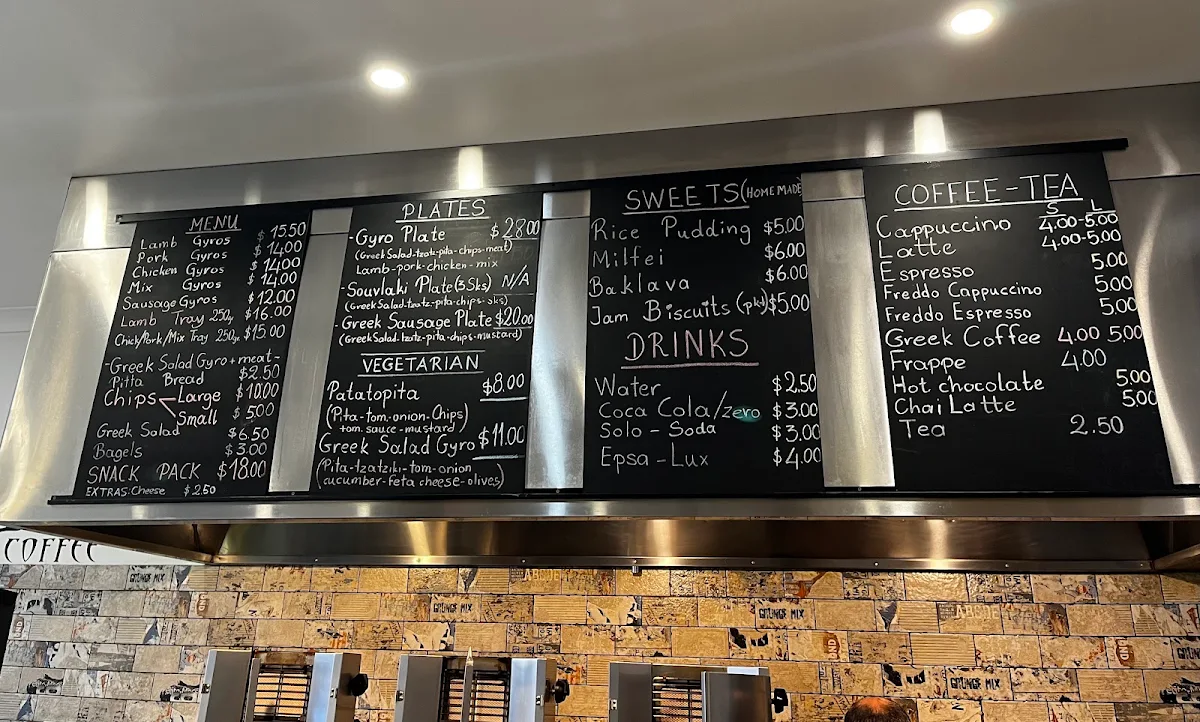 MENU
Lamb Gyros $15.50
Pork Gyros $14.00
Chicken Gyros $14.00
Mix Gyros $14.00
Sausage Gyros $12.00
Lamb Tray 250g $16.00
Chick/Pork/Mix Tray 250g $15.00
-Greek Salad Gyro+meat- $2.50
Pitta Bread
Chips Large $10.00
Small $5.00
Greek Salad $6.50
Bagels $3.00
SNACK PACK $18.00
EXTRAS: Cheese $2.50
PLATES
-Gyro Plate $28.00
(Greek Salad-tzatz-pita-chips-meat)
Lamb-pork-chicken-mix
-Souvlaki Plate (3 Sks) N/A
(Greek Salad-tzatz-pita-chips-sks)
-Greek Sausage Plate $20.00
(Greek Salad-tzatz-pita-chips-mustard)
VEGETARIAN
Patatopita $8.00
(Pita-tom-onion-Chips)
tom.sauce-mustard)
Greek Salad Gyro $11.00
(Pita-tzatziki-tom-onion
cucumber-feta cheese-olives)
SWEETS (HOME MADE
Rice Pudding $5.00
Milfei $6.00
Baklava $6.00
Jam Biscuits (pkt) $5.00
DRINKS
Water $2.50
Coca Cola/zero $3.00
Solo-Soda $3.00
Epsa-Lux $4.00
COFFEE-TEA
S L
Cappuccino 4.00-5.00
Latte 4.00-5.00
Espresso 5.00
Freddo Cappuccino 5.00
Freddo Espresso 5.00
Greek Coffee 4.00 5.00
Frappe 4.00
Hot chocolate 5.00
Chai Latte 5.00
Tea 2.50
COFFEE
GRUNGE MIX
GRUNGE MIX
GRUNGE MIX
GRUNGE MIX
GRUNGE MIX